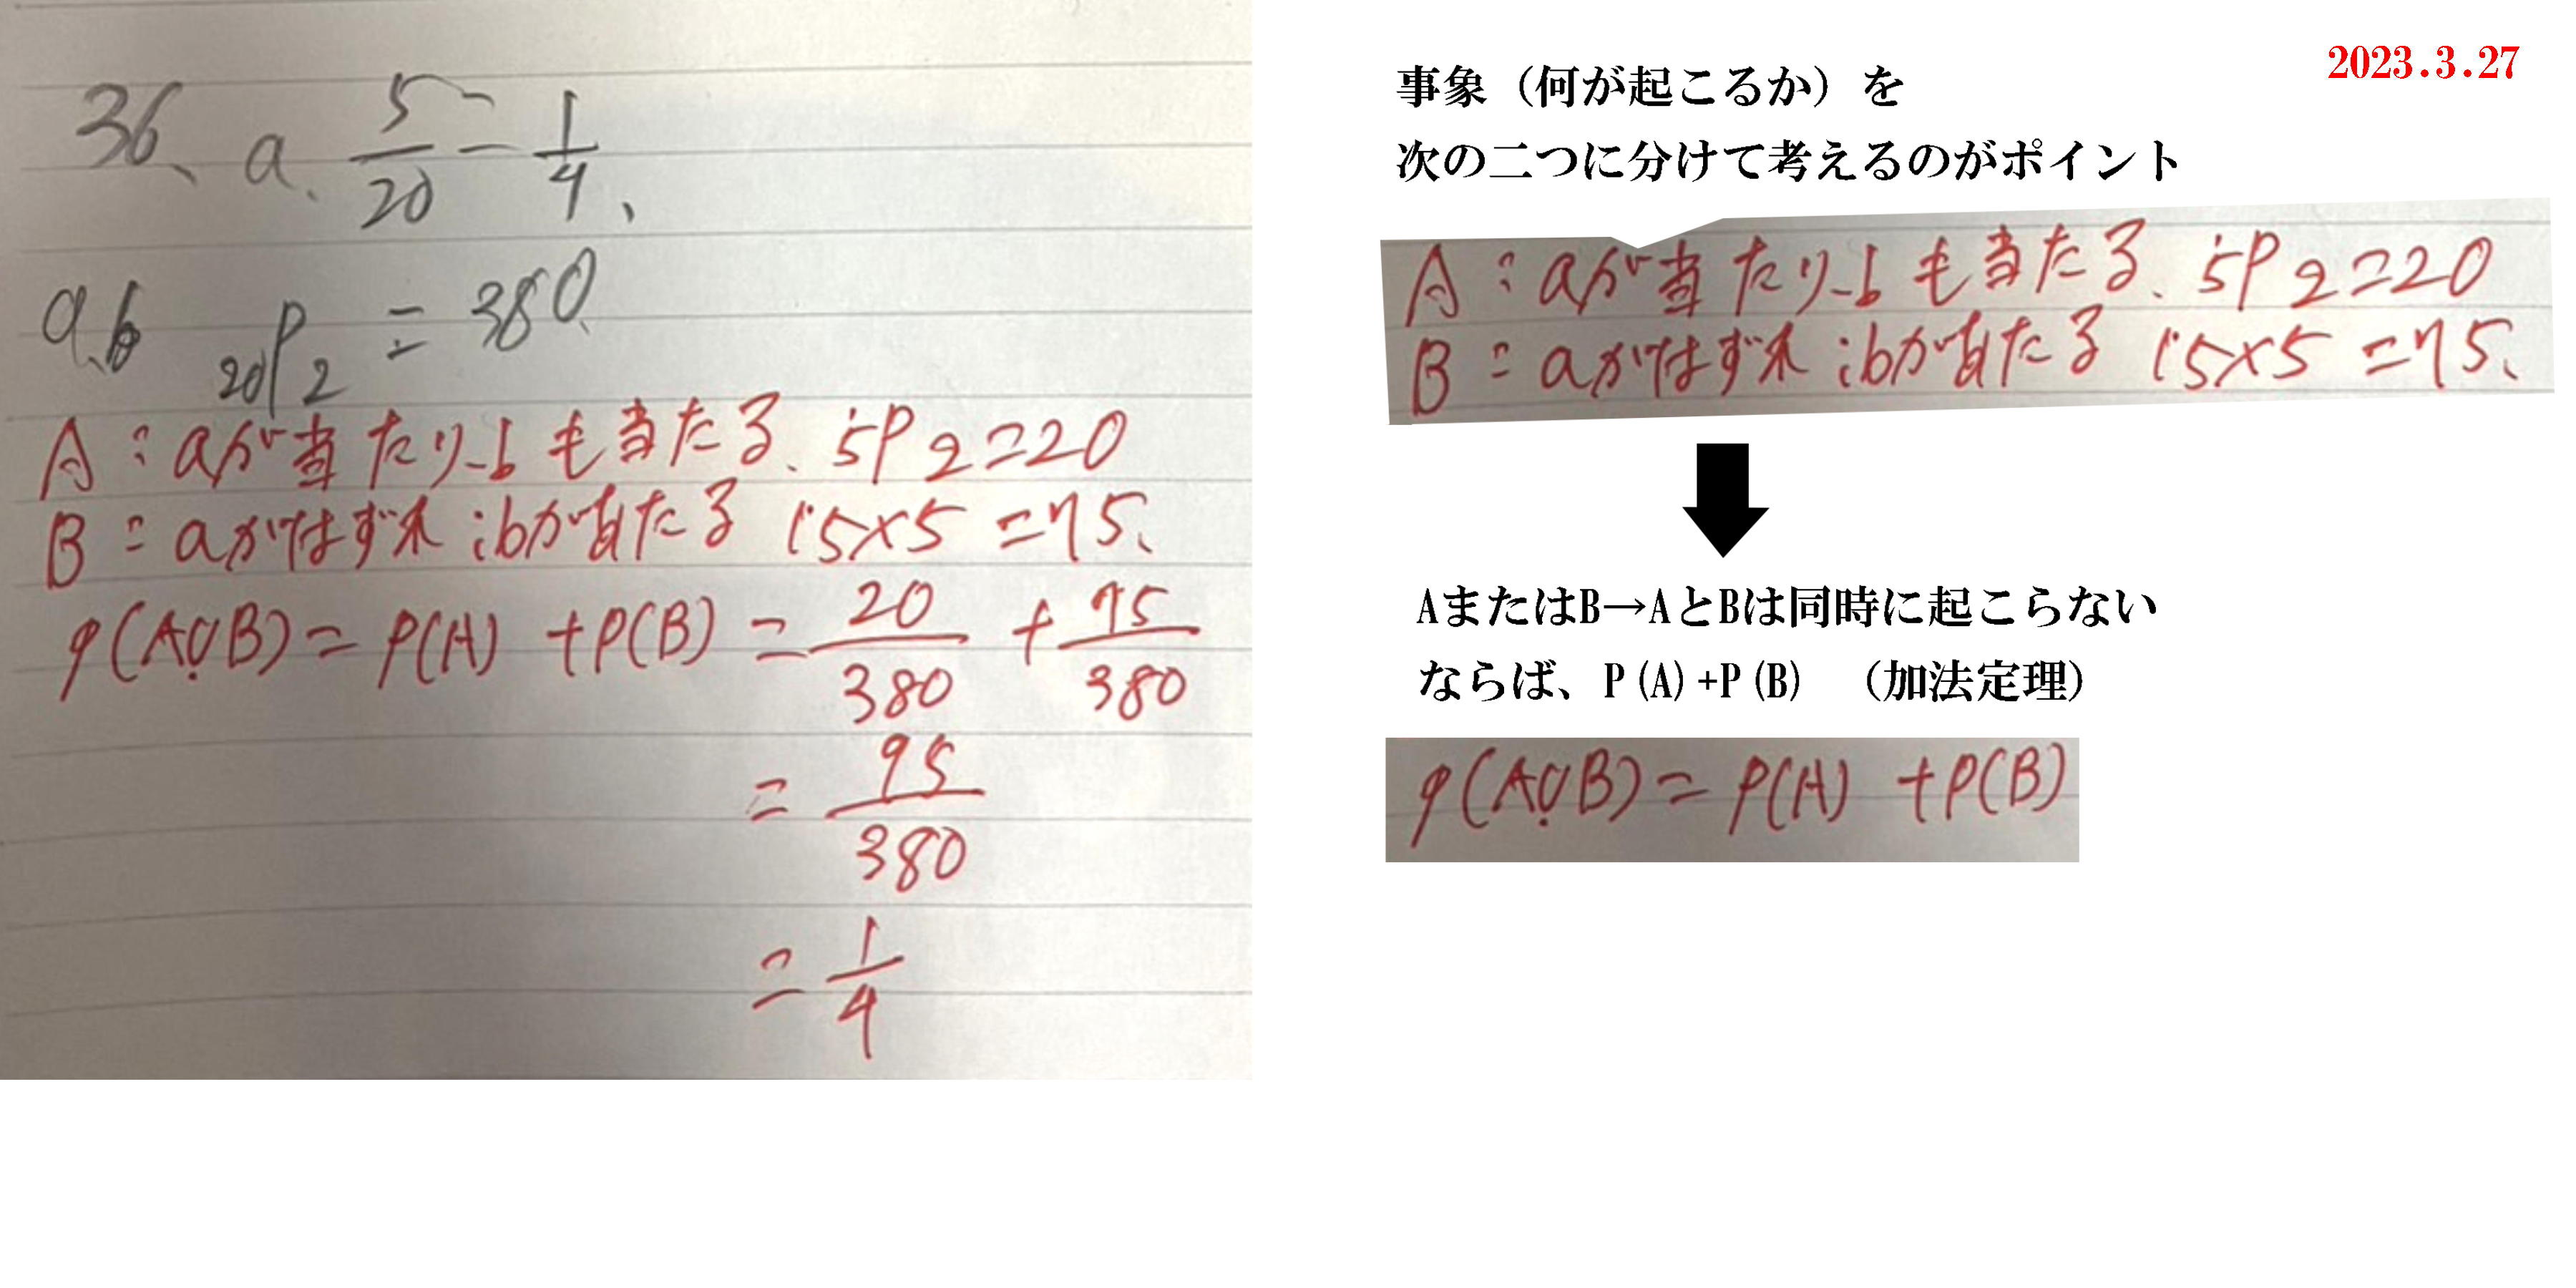 36、a、5/20=1/4、
a,b 20P2=380、
A:aが当たりbも当たる、5P2=20
B:aがはずれ:bがあたる 15×5=75、
P(A∪B)=P(A)+P(B)=20/380+75/380
=95/380
=1/4
2023.3.27
事象（何が起こるか）を
次の二つに分けて考えるのがポイント
A:aが当たりbも当たる、5P2=20
B:aがはずれ:bがあたる 15×5=75、
AまたはB→AとBは同時に起こらない
ならば、P(A)+P(B) （加法定理）
P(A∪B)=P(A)+P(B)